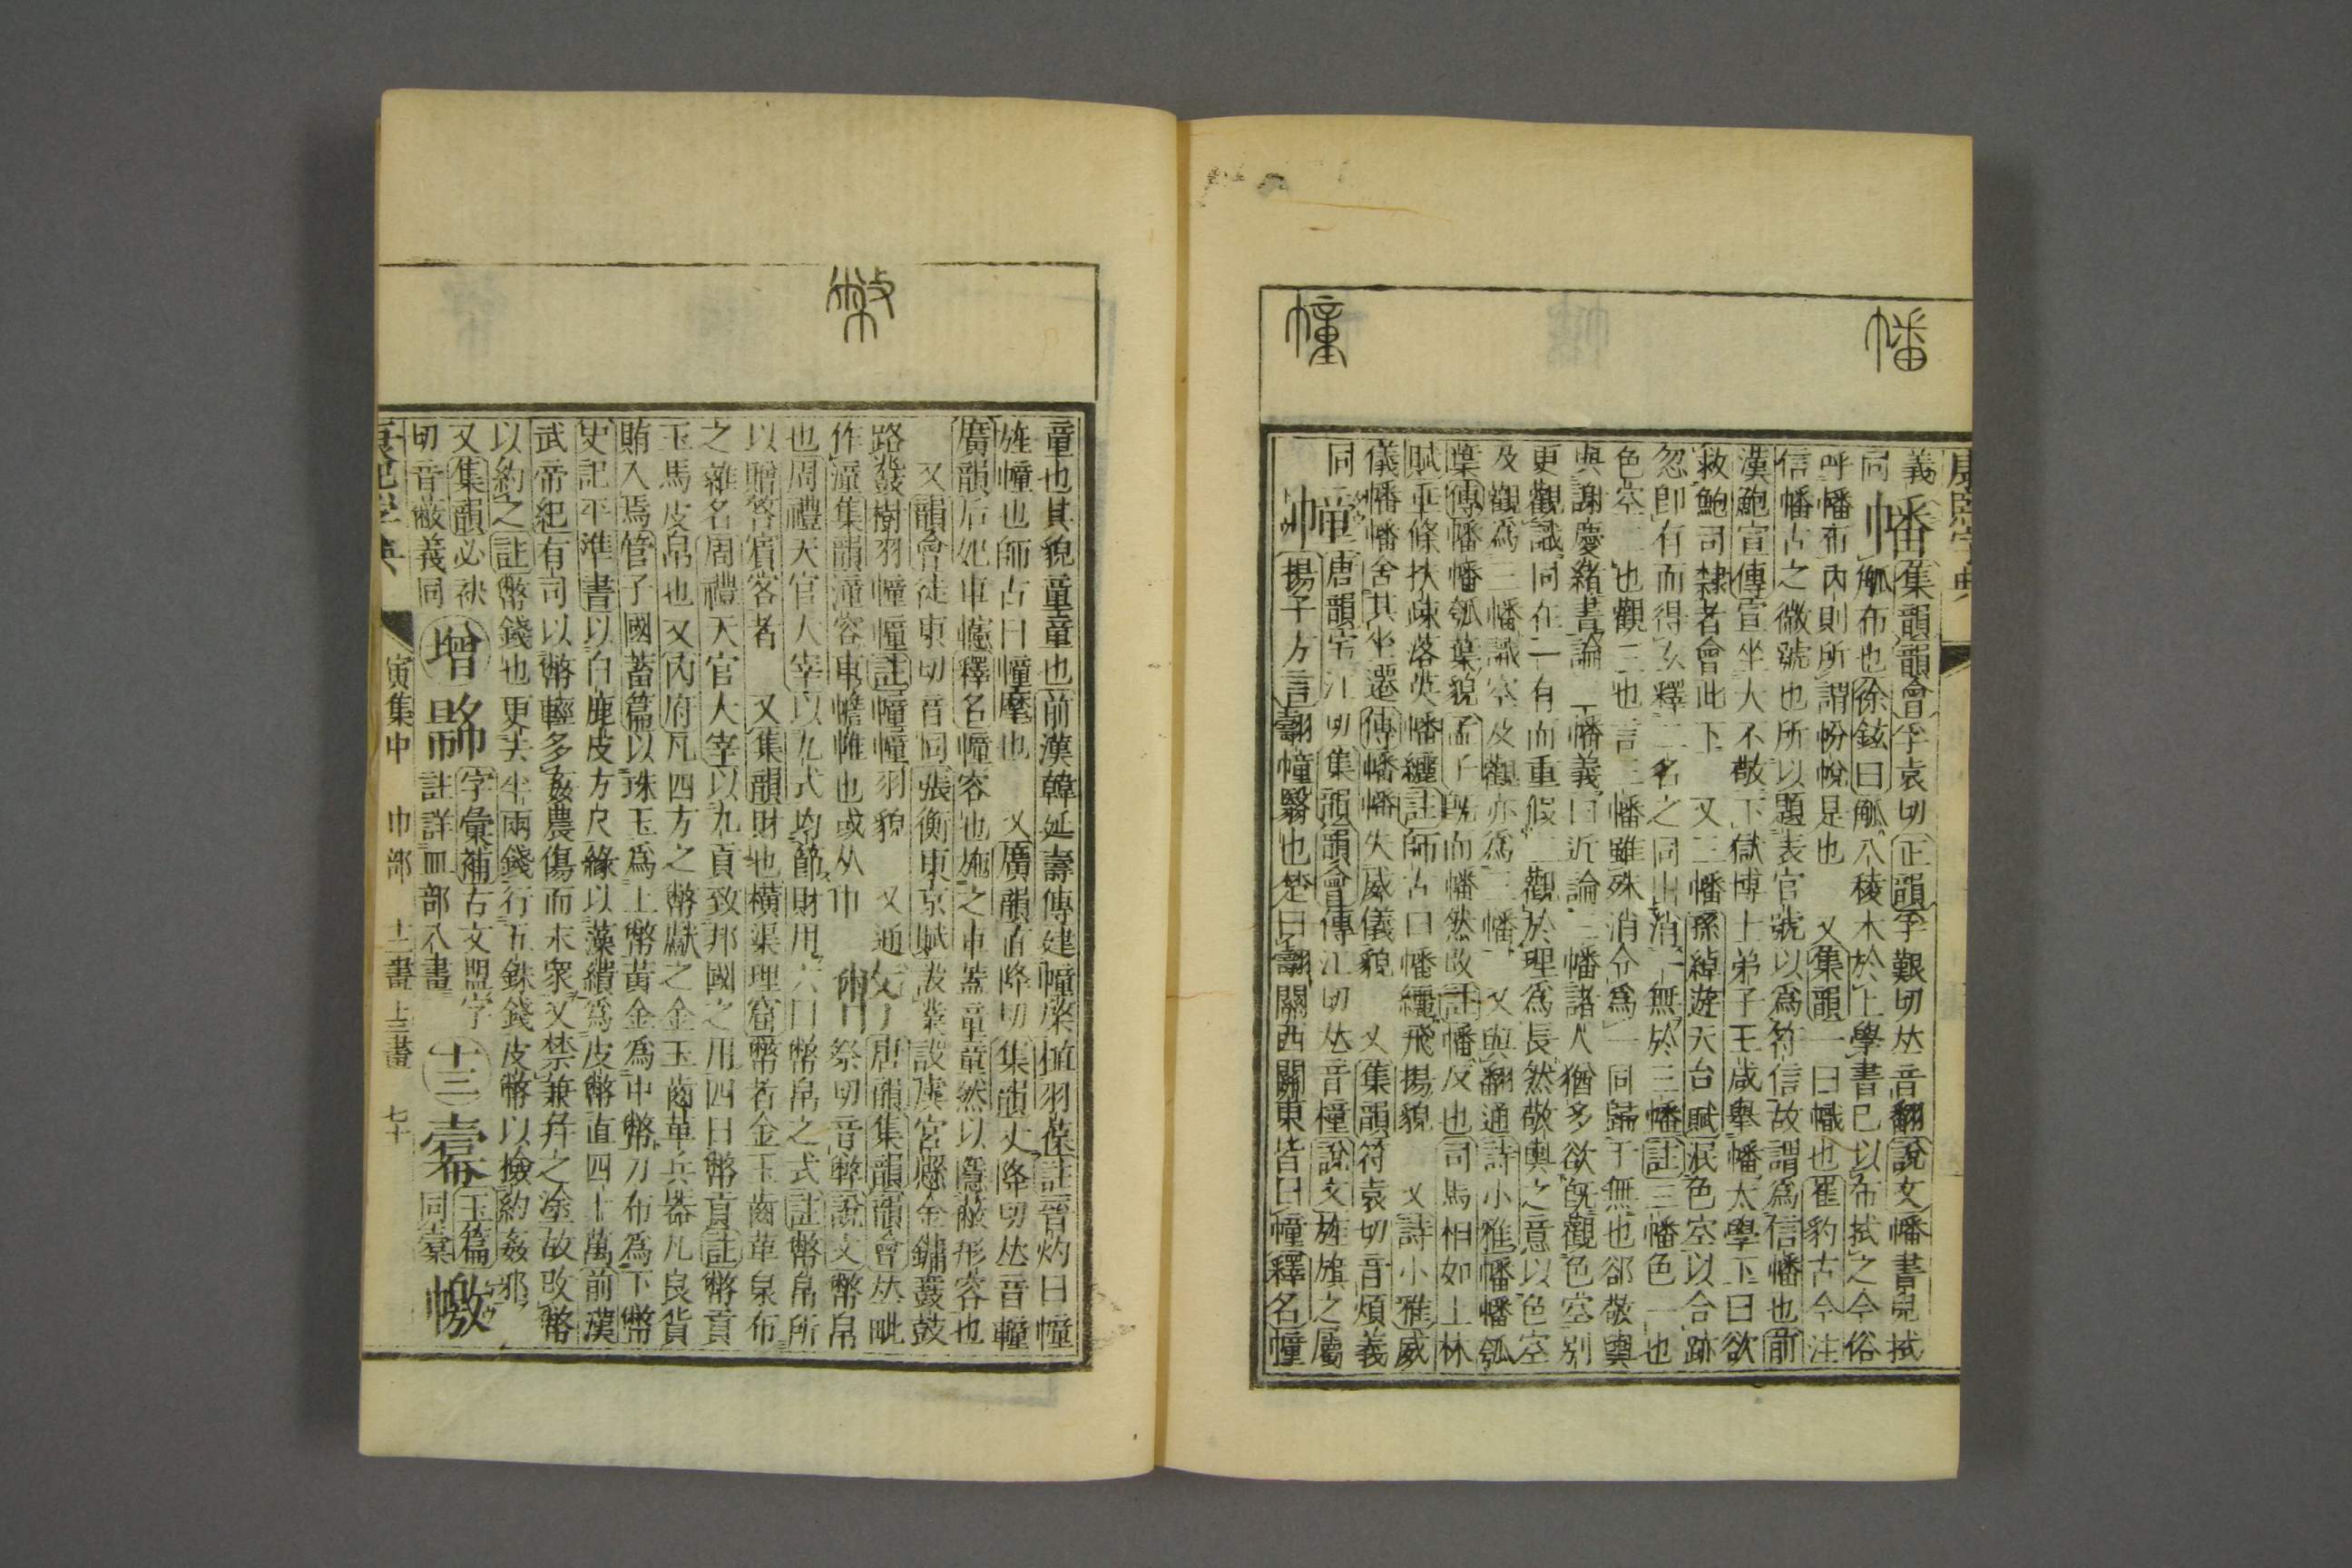 幡
幢
康熙字典
義幡集韻韻會孚袁切正韻孚艱切𠀤音翻說文幡書兒拭
同觚布也徐鉉曰觚八稜木於上學書已以布拭之今俗
呼幡布內則所謂帉帨是也 又集韻一曰幟也崔豹古今注
信幡古之徽號也所以題表官號以爲符信故謂爲信幡也前
漢鮑宣傳宣坐大不敬下獄博士弟子王咸舉幡太學下曰欲
救鮑司隸者會此下 又三幡孫綽遊天台賦泯色空以合跡
忽卽有而得𤣥釋二名之同出消一無於三幡註三幡色一也
色空二也觀三也言三幡雖殊消令爲一同歸于無也郤敬輿
與謝慶緒書論三幡義曰近論三幡諸人猶多欲旣觀色空別
更觀識同在一有而重假二觀於理爲長然敬輿之意以色空
及觀爲三幡識空及觀亦爲三幡 又與翻通詩小雅幡幡瓠
葉傳幡幡瓠葉貌孟子旣而幡然改註幡反也司馬相如上林
賦垂條扶疎落英幡纚註師古曰幡纚飛揚貌 又詩小雅威
儀幡幡舍其坐遷傳幡幡失威儀貌 又集韻符袁切音煩義
同幢唐韻宅江切集韻韻會傳江切𠀤音橦說文旌旗之屬
揚子方言翿幢翳也楚曰翿關西關東皆曰幢釋名幢
幣
童也其貌童童也前漢韓延壽傳建幢棨植羽葆註晉灼曰幢
旌幢也師古曰幢麾也 又廣韻直降切集韻丈降切𠀤音轋
廣韻后妃車幰釋名幢容也施之車蓋童童然以隱蔽形容也
又韻會徒東切音同張衡東京賦設業設虡宮懸金鏞鼖鼓
路鼗樹羽幢幢註幢幢羽貌 又通幣唐韻集韻韻會𠀤毗
作潼集韻潼容車幨帷也或从巾 祭切音弊說文幣帛
也周禮天官大宰以九式均節財用六曰幣帛之式註幣帛所
以贈勞賓客者 又集韻財也橫渠理窟幣者金玉齒革泉布
之雜名周禮天官大宰以九貢致邦國之用四曰幣貢註幣貢
玉馬皮帛也又內府凡四方之幣獻之金玉齒革兵器凡良貨
賄入焉管子國蓄篇以珠玉爲上幣黃金爲中幣刀布爲下幣
史記平準書以白鹿皮方尺緣以藻繢爲皮幣直四十萬前漢
武帝紀有司以幣輕多姦農傷而末衆又禁兼幷之塗故改幣
以約之註幣錢也更去半兩錢行五銖錢皮幣以撿約姦邪
又集韻必袂字彙補古文盟字玉篇
切音蔽義同增 註詳皿部八畫十三幦同幦幑
康熙字典 寅集中 巾部 十二畫 十三畫 七十